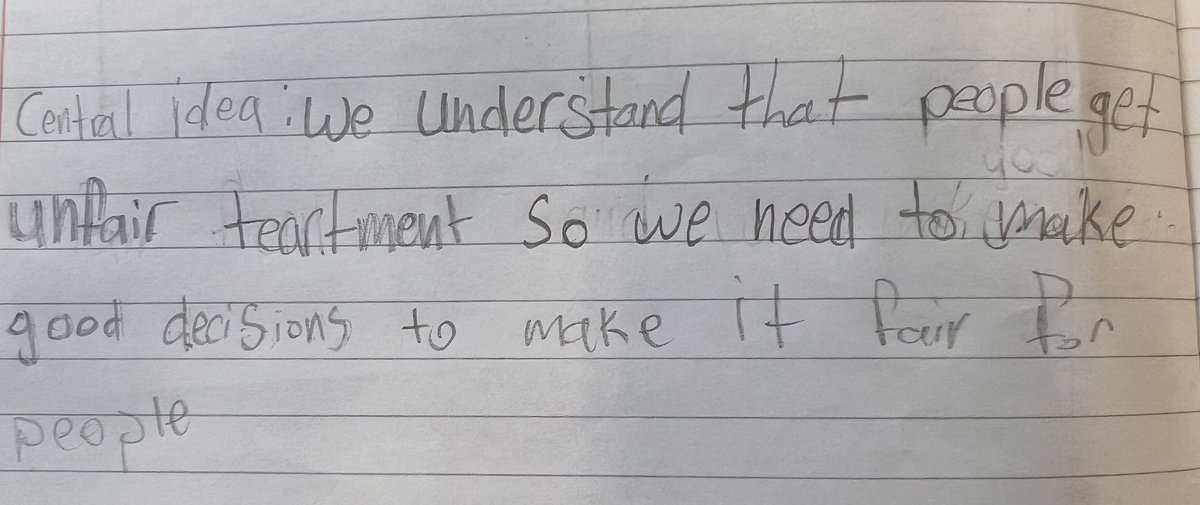 Cental idea: We understand that people get
unfair teartment so we need to make
good decisions to make it fair for
people